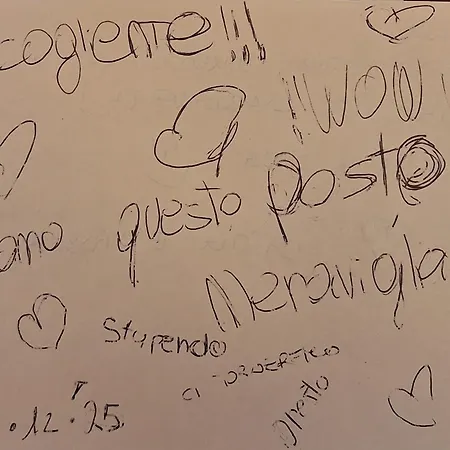 cogliente!!!
!!WOW!
amo questo posto
Meraviglia
Stupendo
Ci
.12.'25.